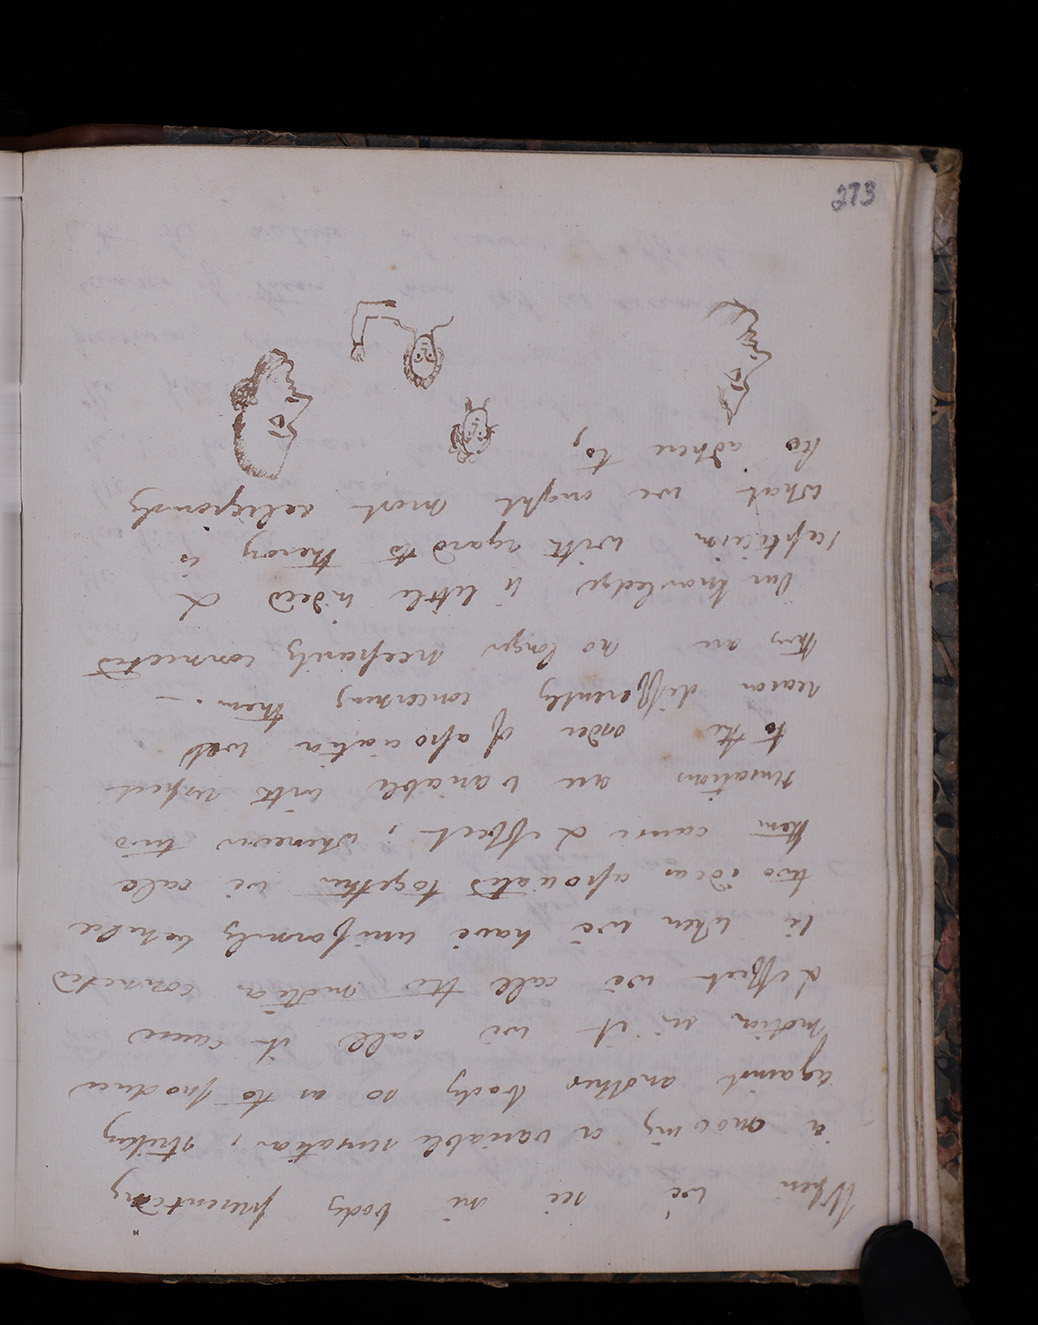 273
When we see in body presenting
a moving a variable sensation, striking
against another body so as to produce
motion in it we call it cause
& effect we call the motion connected
ie when we have uniformly beheld
two ideas associated together we call
them cause & effect, whenever two
sensations are variable with respect
to the order of association we
reason differently concerning them. —
they are no longer necessarily connected
Our knowledge is little indeed &
scepticism with regard to theory is
what we ought most religiously
to adhere to,